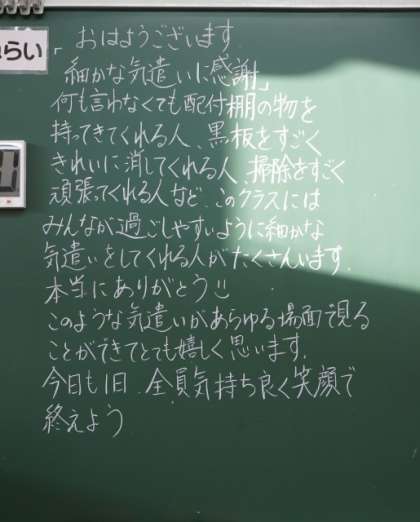 らい
おはようございます.
「細かな気遣いに感謝」
何も言わなくても配付棚の物を
持ってきてくれる人、黒板をすごく
きれいに消してくれる人、掃除をすごく
頑張ってくれる人など、このクラスには
みんなが過ごしやすいように細かな
気遣いをしてくれる人がたくさんいます.
本当にありがとう!!
このような気遣いがあらゆる場面で見る
ことができてとても嬉しく思います.
今日も1日、全員気持ち良く笑顔で
終えよう